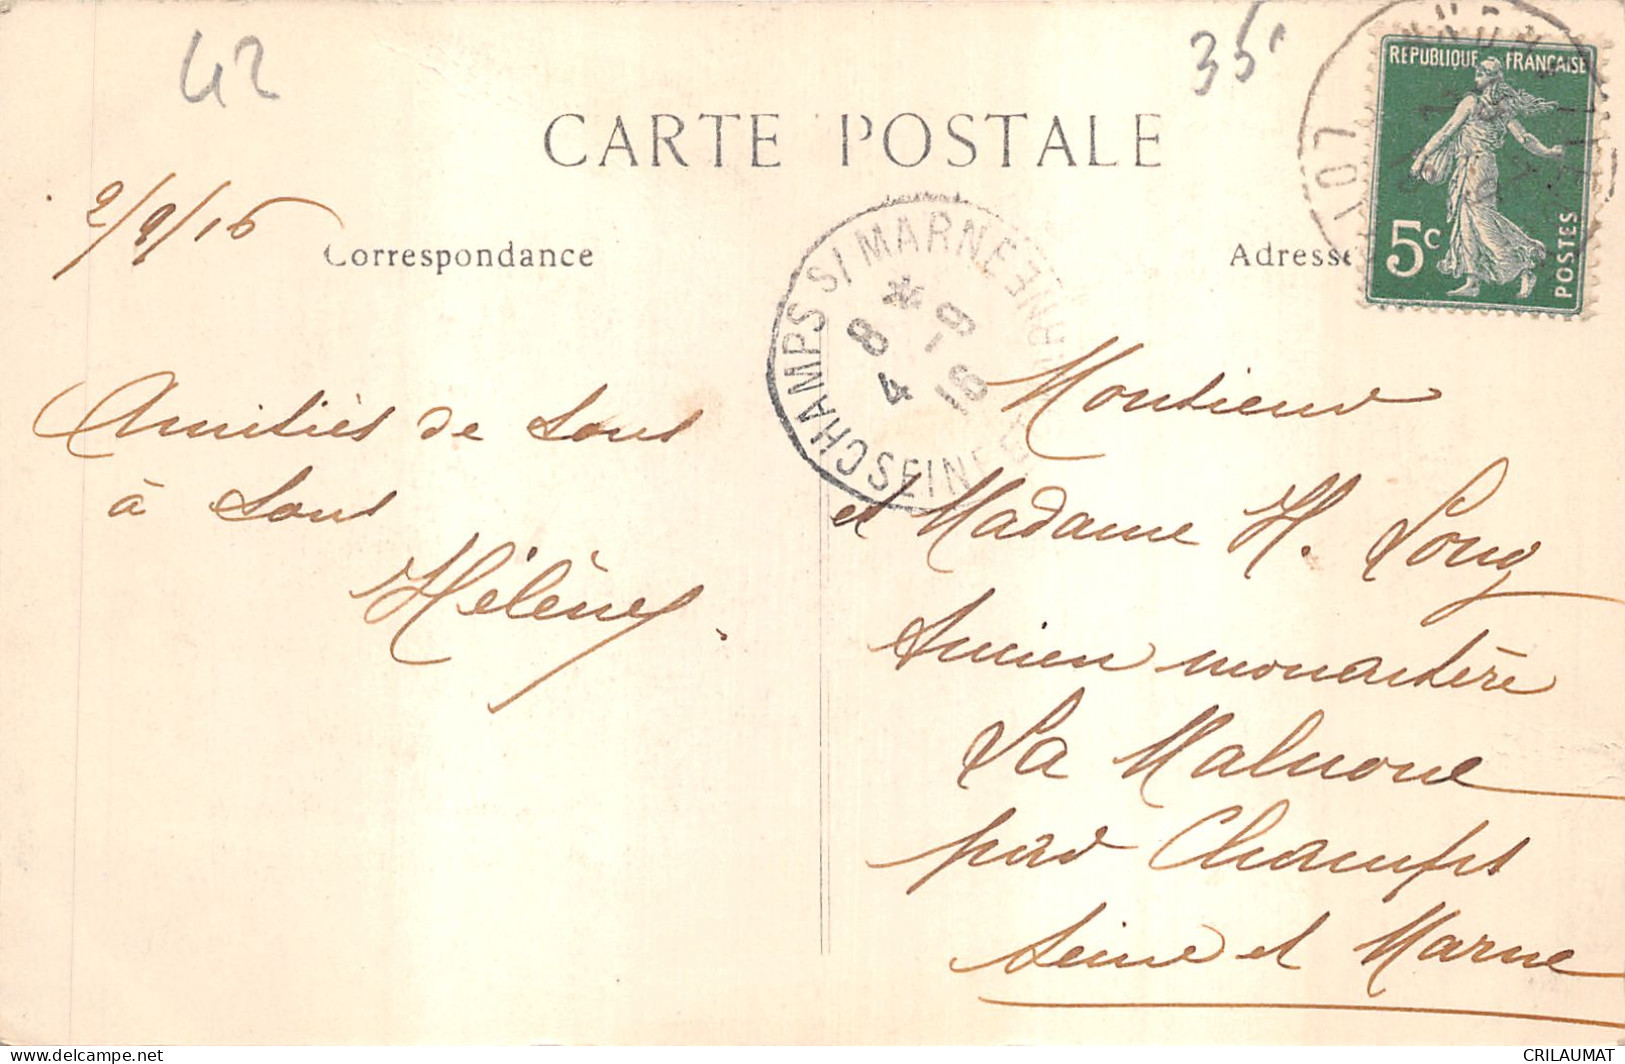 42
35
CARTE POSTALE
REPUBLIQUE FRANCAISE
5c
POSTES
2/9/16
Correspondance
Adresse
CHAMPS S/ MARNE
SEINE ET MARNE
* 8 4
9 - 16
Amitiés de tous
à tous
Hélène
Monsieur
et Madame H. Loug
Ancien monastère
La Malnoue
par Champs
Seine et Marne
CRILAUMAT